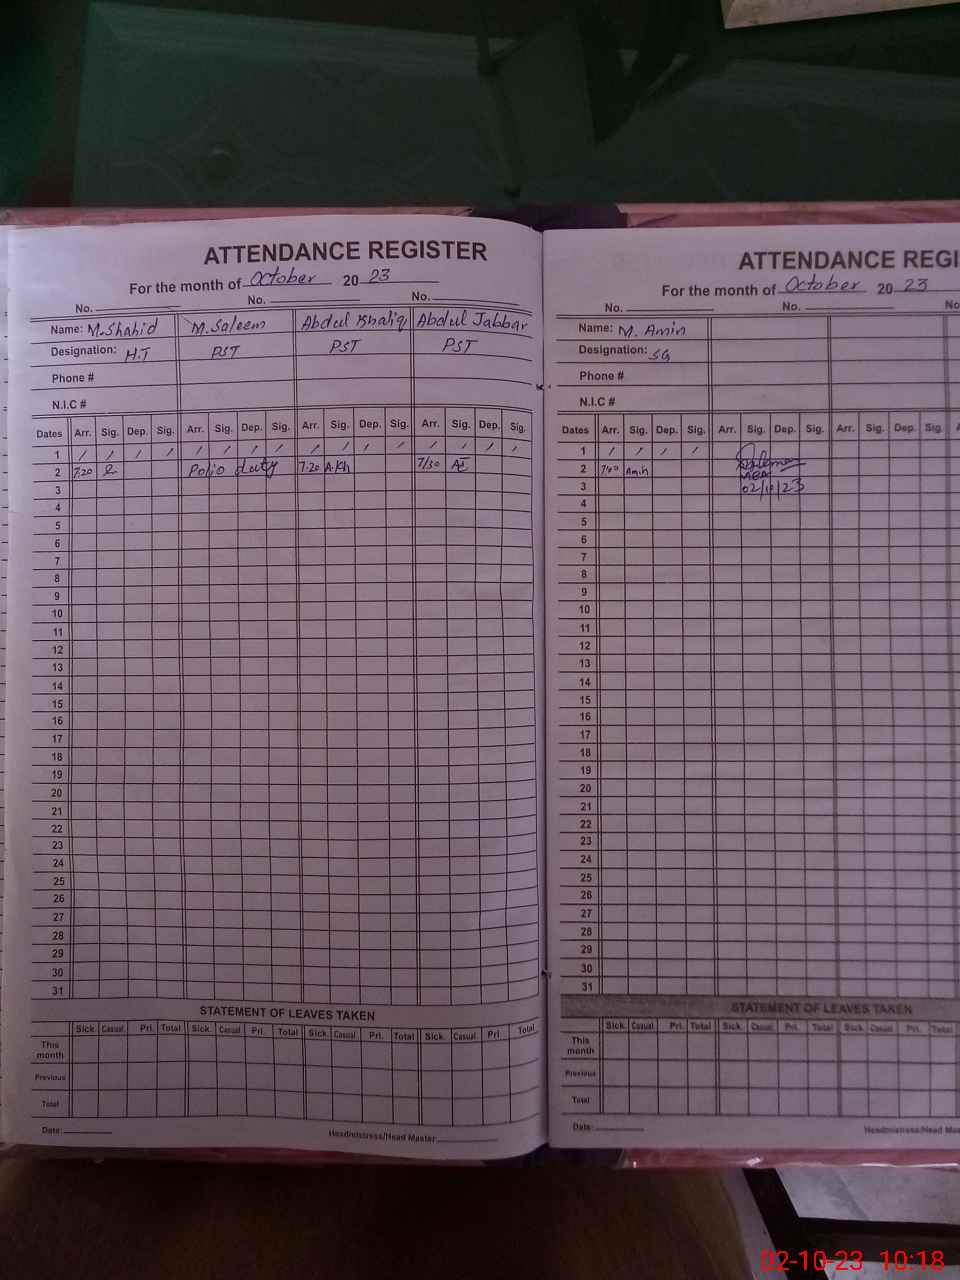 ATTENDANCE REGISTER
For the month of October 20 23
No. No. No.
Name: M.Shahid M.Saleem Abdul Khaliq Abdul Jabbar
Designation: H.T PST PST PST
Phone #
N.I.C #
Dates Arr. Sig. Dep. Sig. Arr. Sig. Dep. Sig. Arr. Sig. Dep. Sig. Arr. Sig. Dep. Sig.
1 / / / / / / / / / / / / / / / /
2 7.20 Polio duty 7.20 A.Kh 7/30
3
4
5
6
7
8
9
10
11
12
13
14
15
16
17
18
19
20
21
22
23
24
25
26
27
28
29
30
31
STATEMENT OF LEAVES TAKEN
Sick. Casual Pri. Total Sick. Casual Pri. Total Sick. Casual Pri. Total Sick. Casual Pri Total
This month
Previous
Total
Date: Headmistress/Head Master
ATTENDANCE REGI
For the month of October 20 23
No. No. No
Name: M. Amin
Designation: SG
Phone #
N.I.C #
Dates Arr. Sig. Dep. Sig. Arr. Sig. Dep. Sig. Arr. Sig. Dep. Sig. A
1 / / / /
2 Amin
MEA
3 02/10/23
4
5
6
7
8
9
10
11
12
13
14
15
16
17
18
19
20
21
22
23
24
25
26
27
28
29
30
31
STATEMENT OF LEAVES TAKEN
Sick. Casual Pri. Total Sick. Casual Pri. Total Sick. Casual Pri. Total
This month
Previous
Total
Date: Headmistress/Head Mas
02-10-23 10:18